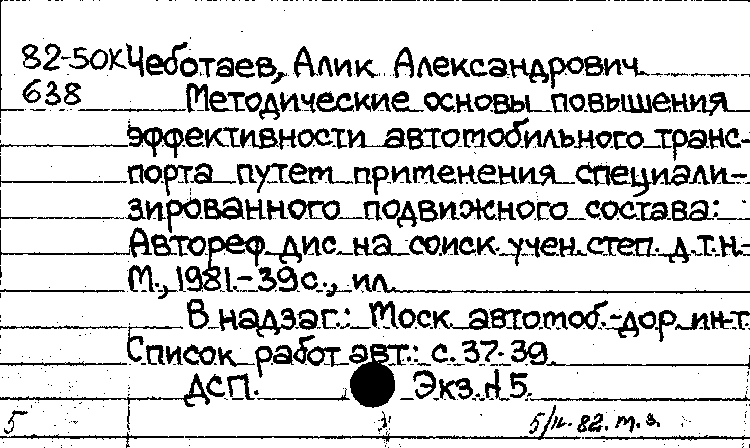 82-50К Чеботаев, Алик Александрович.
638 Методические основы повышения
эффективности автомобильного транс-
порта путем применения специали-
зированного подвижного состава:
Автореф. дис. на соиск. учен. степ. д.т.н.-
М., 1981.-39с., ил.
В надзаг.: Моск. автомоб.-дор. ин-т.
Список работ авт.: с. 37-39.
ДСП. Экз.№5.
5 82. т. з.